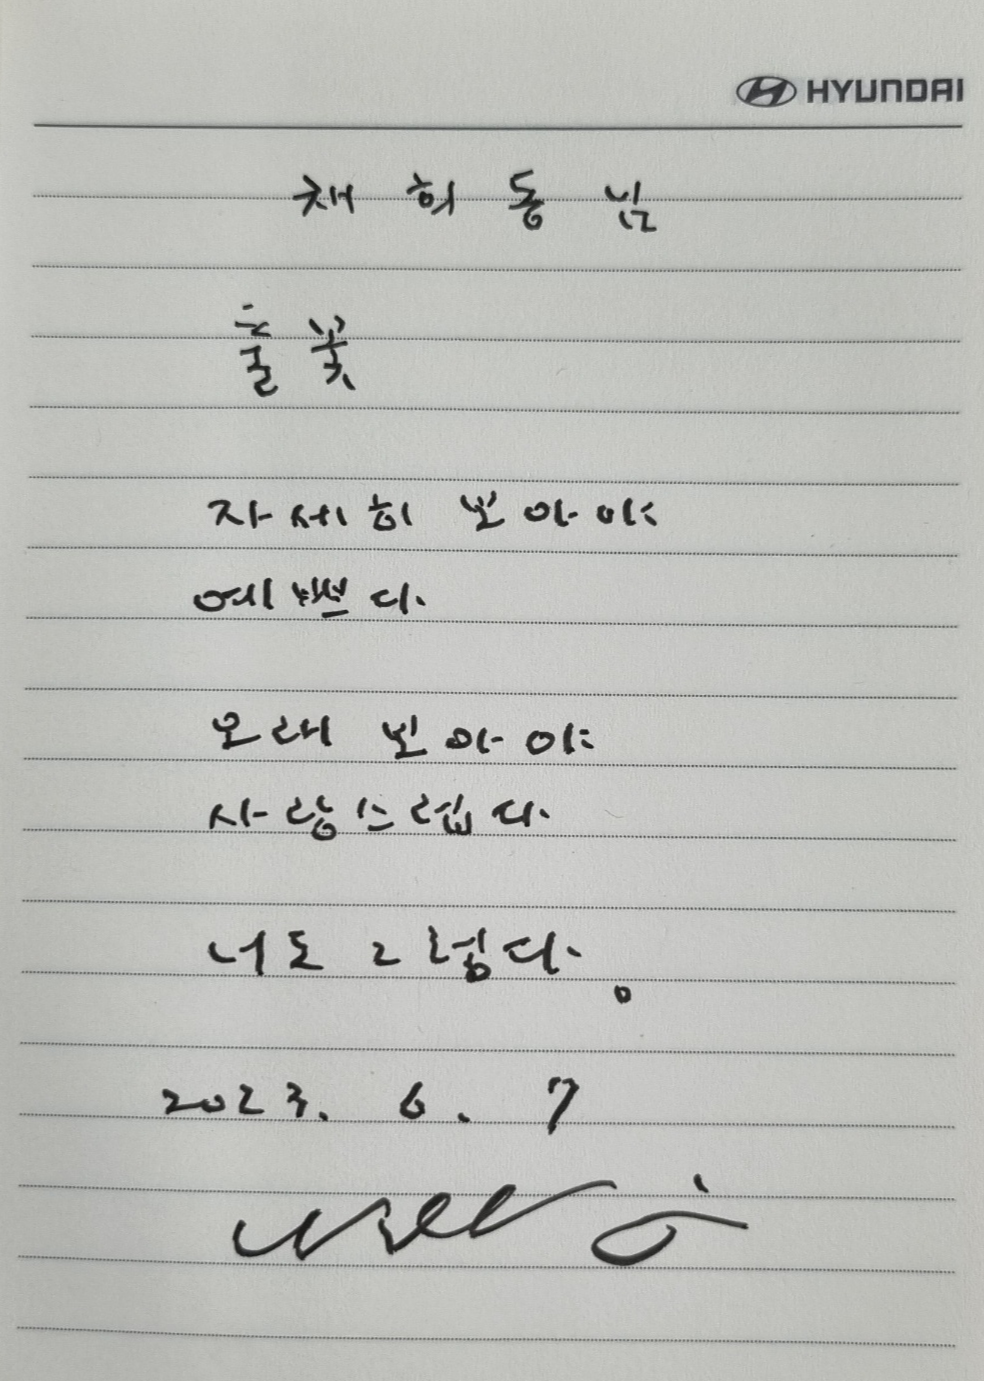 HYUNDAI
채희동님
풀꽃
자세히 보아야
예쁘다.
오래 보아야
사랑스럽다.
너도 그렇다.
2023. 6. 7